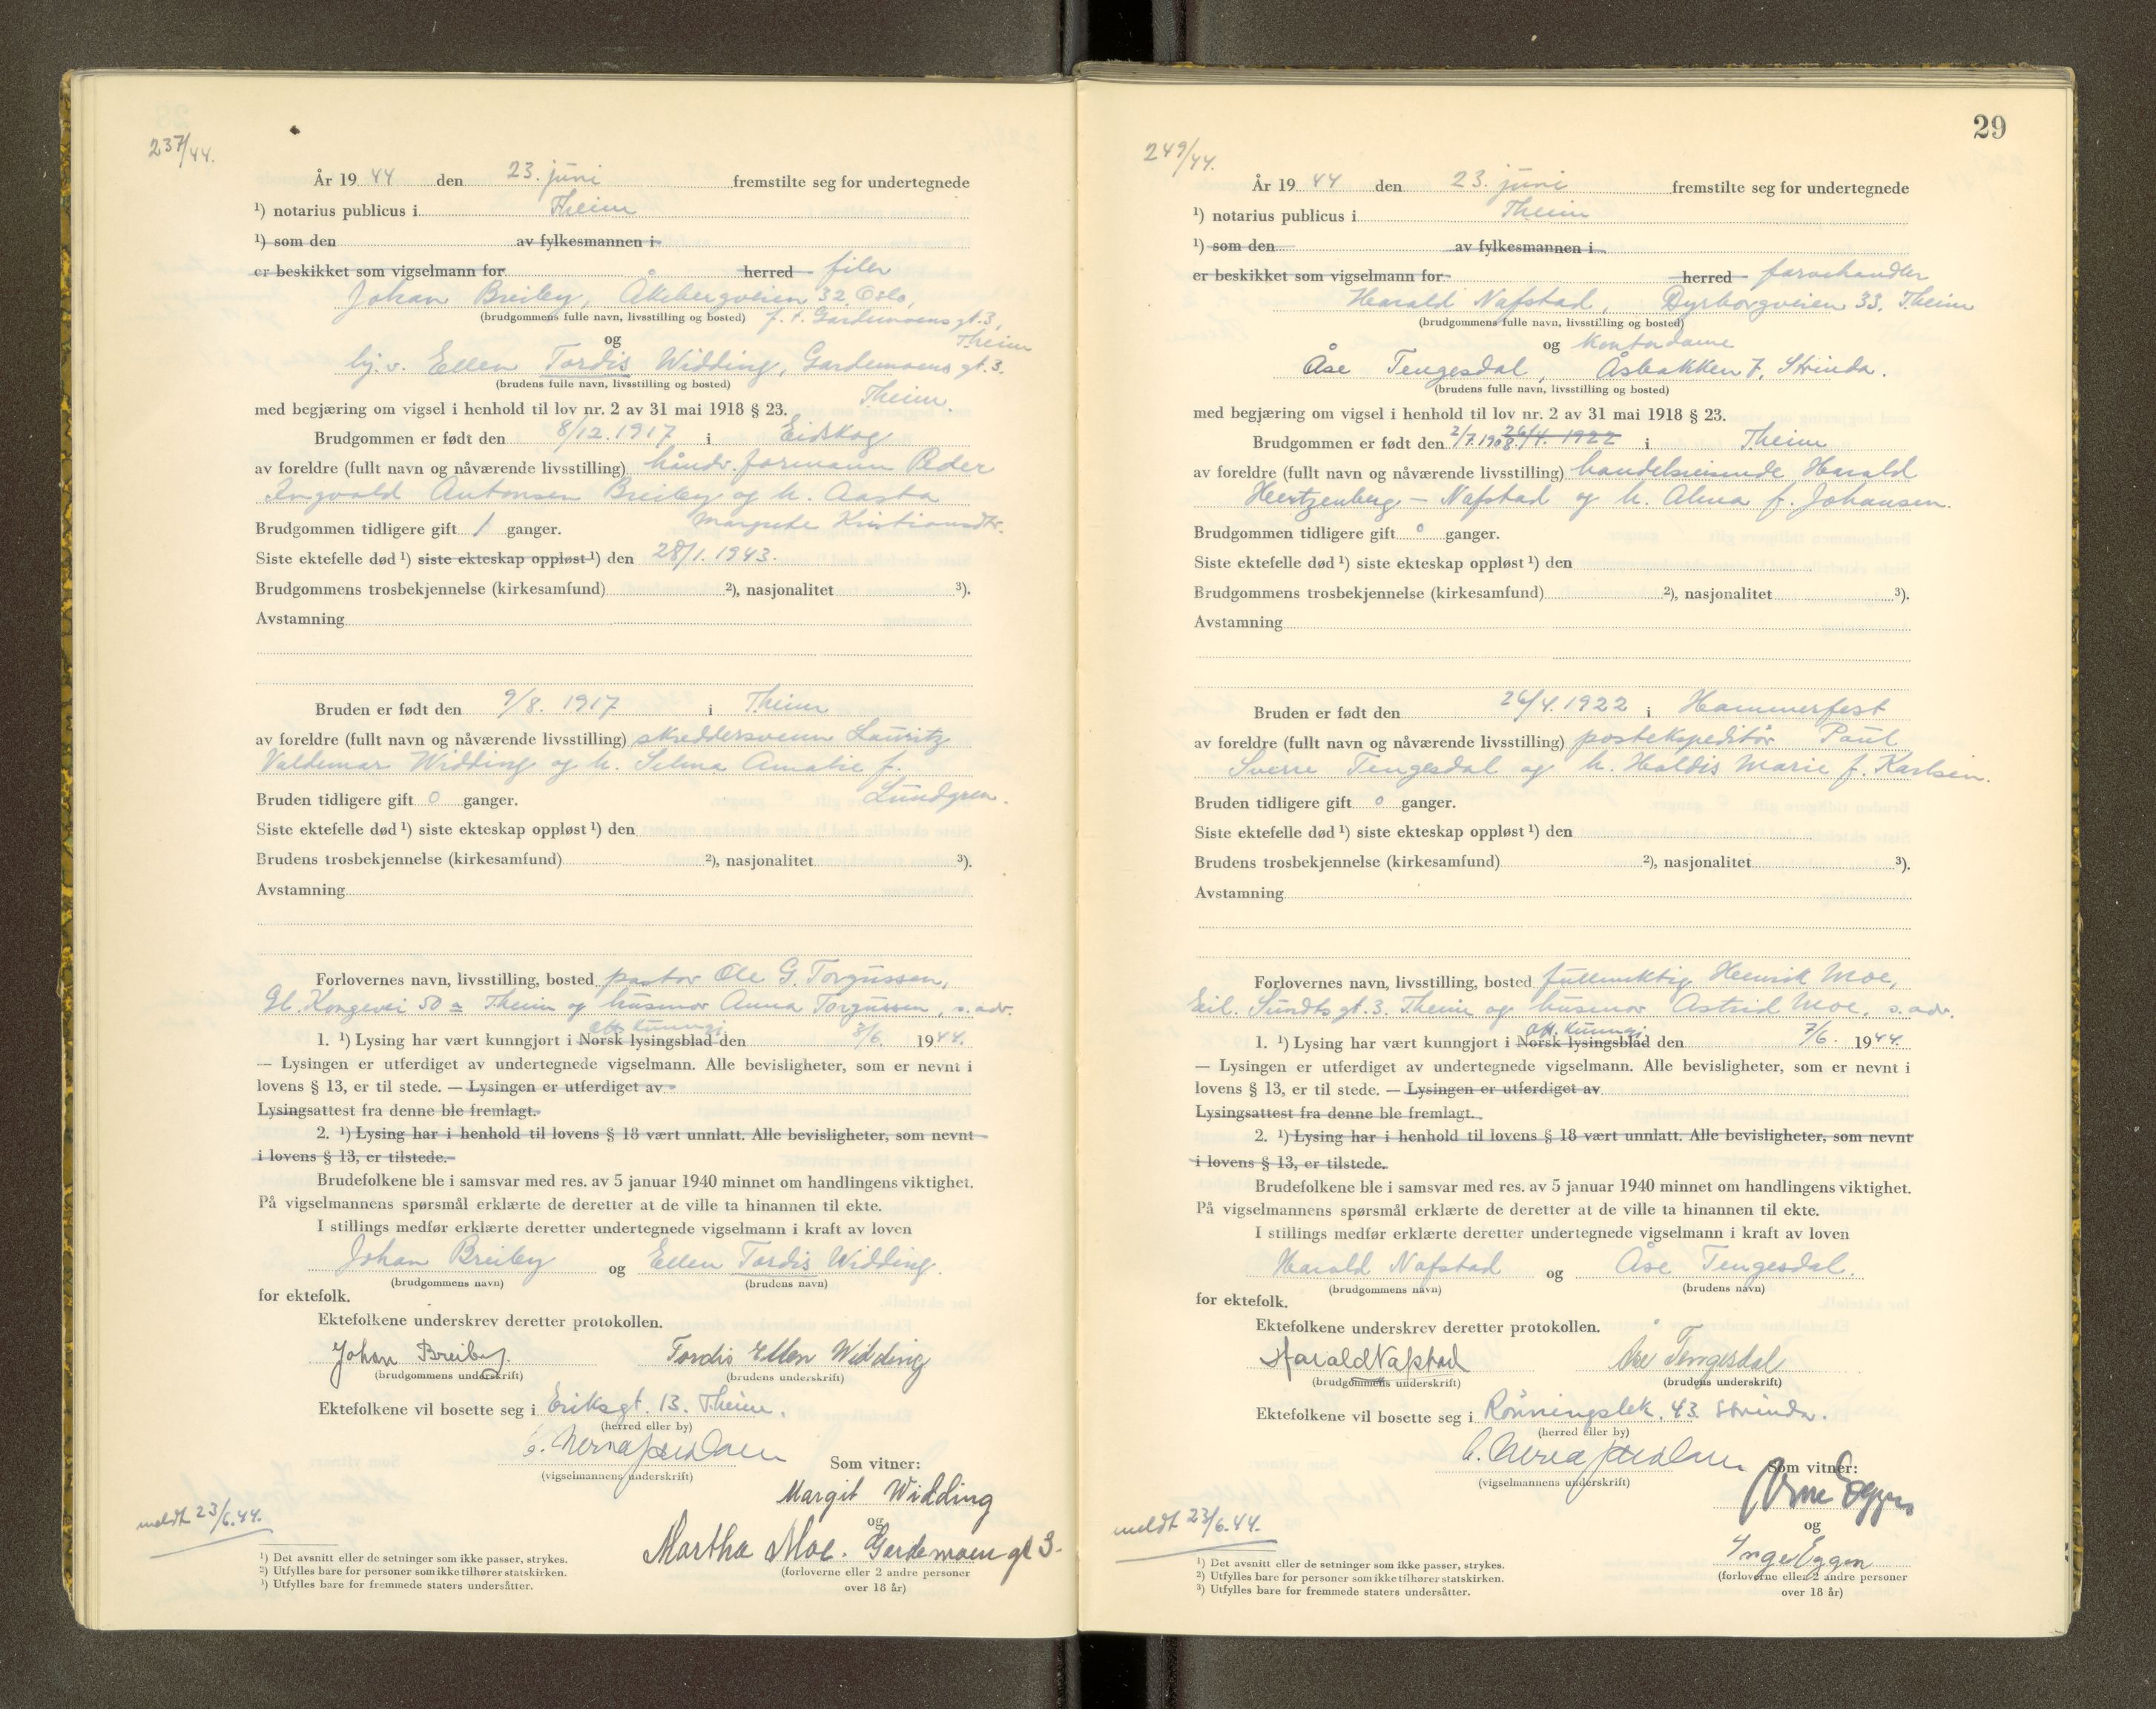 237/44.
År 19 44 den 23. juni fremstilte seg for undertegnede
¹) notarius publicus i Trheim
¹) som den av fylkesmannen i
er beskikket som vigselmann for herred filer
Johan Breiby, Åkebergveien 32 Oslo,
(brudgommens fulle navn, livsstilling og bosted) f. t. Gardemoens gt. 3,
og Trheim
hj. v. Ellen Tordis Widding, Gardemoens gt. 3.
(brudens fulle navn, livsstilling og bosted)
med begjæring om vigsel i henhold til lov nr. 2 av 31 mai 1918 § 23. Trheim.
Brudgommen er født den 8/12. 1917 i Eidskog
av foreldre (fullt navn og nåværende livsstilling) håndv. formann Peder
Ingvald Antonsen Breiby og h. Aasta
Brudgommen tidligere gift 1 ganger. Margrethe Kristiansdtr.
Siste ektefelle død ¹) siste ekteskap oppløst ¹) den 28/1. 1943.
Brudgommens trosbekjennelse (kirkesamfund) ²), nasjonalitet ³).
Avstamning
Bruden er født den 9/8. 1917 i Trheim
av foreldre (fullt navn og nåværende livsstilling) skreddersvenn Lauritz
Valdemar Widding og h. Selma Amalie f.
Bruden tidligere gift 0 ganger. Lundgren.
Siste ektefelle død ¹) siste ekteskap oppløst ¹) den
Brudens trosbekjennelse (kirkesamfund) ²), nasjonalitet ³).
Avstamning
Forlovernes navn, livsstilling, bosted pastor Ole G. Torgussen,
Gl. Kongevei 50 a Trheim og husmor Anna Torgussen, s. adr.
off. kunngj.
1. ¹) Lysing har vært kunngjort i Norsk lysingsblad den 3/6. 1944.
— Lysingen er utferdiget av undertegnede vigselmann. Alle bevisligheter, som er nevnt i
lovens § 13, er til stede. — Lysingen er utferdiget av
Lysingsattest fra denne ble fremlagt.
2. ¹) Lysing har i henhold til lovens § 18 vært unnlatt. Alle bevisligheter, som nevnt
i lovens § 13, er tilstede.
Brudefolkene ble i samsvar med res. av 5 januar 1940 minnet om handlingens viktighet.
På vigselmannens spørsmål erklærte de deretter at de ville ta hinannen til ekte.
I stillings medfør erklærte deretter undertegnede vigselmann i kraft av loven
Johan Breiby og Ellen Tordis Widding.
(brudgommens navn) (brudens navn)
for ektefolk.
Ektefolkene underskrev deretter protokollen.
Johan Breiby. Tordis Ellen Widding
(brudgommens underskrift) (brudens underskrift)
Ektefolkene vil bosette seg i Eriksgt. 13. Trheim.
(herred eller by)
(vigselmannens underskrift) Som vitner:
Margit Widding
og
Martha Moe. Gardemoen gt 3.
(forloverne eller 2 andre personer
over 18 år)
meldt 23/6.44.
¹) Det avsnitt eller de setninger som ikke passer, strykes.
²) Utfylles bare for personer som ikke tilhører statskirken.
³) Utfylles bare for fremmede staters undersåtter.
29
249/44.
År 19 44 den 23. juni fremstilte seg for undertegnede
¹) notarius publicus i Trheim
¹) som den av fylkesmannen i
er beskikket som vigselmann for herred farvehandler
Harald Nafstad, Dyrborgveien 33. Trheim
(brudgommens fulle navn, livsstilling og bosted)
og kontordame
Åse Tengesdal, Åsbakken 7, Strinda.
(brudens fulle navn, livsstilling og bosted)
med begjæring om vigsel i henhold til lov nr. 2 av 31 mai 1918 § 23.
Brudgommen er født den 2/7. 1908. 26/4. 1922 i Trheim
av foreldre (fullt navn og nåværende livsstilling) handelsreisende Harald
Hertzenberg - Nafstad og h. Alma f. Johansen.
Brudgommen tidligere gift 0 ganger.
Siste ektefelle død ¹) siste ekteskap oppløst ¹) den
Brudgommens trosbekjennelse (kirkesamfund) ²), nasjonalitet ³).
Avstamning
Bruden er født den 26/4. 1922 i Hammerfest
av foreldre (fullt navn og nåværende livsstilling) postekspeditör Paul
Sverre Tengesdal og h. Haldis Marie f. Karlsen.
Bruden tidligere gift 0 ganger.
Siste ektefelle død ¹) siste ekteskap oppløst ¹) den
Brudens trosbekjennelse (kirkesamfund) ²), nasjonalitet ³).
Avstamning
Forlovernes navn, livsstilling, bosted fullmektig Henrik Moe,
Eil. Sundts gt. 3. Trheim og husmor Astrid Moe, s. adr.
off. kunngj.
1. ¹) Lysing har vært kunngjort i Norsk lysingsblad den 7/6. 1944.
— Lysingen er utferdiget av undertegnede vigselmann. Alle bevisligheter, som er nevnt i
lovens § 13, er til stede. — Lysingen er utferdiget av
Lysingsattest fra denne ble fremlagt.
2. ¹) Lysing har i henhold til lovens § 18 vært unnlatt. Alle bevisligheter, som nevnt
i lovens § 13, er tilstede.
Brudefolkene ble i samsvar med res. av 5 januar 1940 minnet om handlingens viktighet.
På vigselmannens spørsmål erklærte de deretter at de ville ta hinannen til ekte.
I stillings medfør erklærte deretter undertegnede vigselmann i kraft av loven
Harald Nafstad og Åse Tengesdal.
(brudgommens navn) (brudens navn)
for ektefolk.
Ektefolkene underskrev deretter protokollen.
Harald Nafstad Åse Tengesdal
(brudgommens underskrift) (brudens underskrift)
Ektefolkene vil bosette seg i Rönningsbk. 43. Strinda.
(herred eller by)
(vigselmannens underskrift) Som vitner:
Arne Eggen
og
Inger Eggen
(forloverne eller 2 andre personer
over 18 år)
meldt 23/6.44.
¹) Det avsnitt eller de setninger som ikke passer, strykes.
²) Utfylles bare for personer som ikke tilhører statskirken.
³) Utfylles bare for fremmede staters undersåtter.